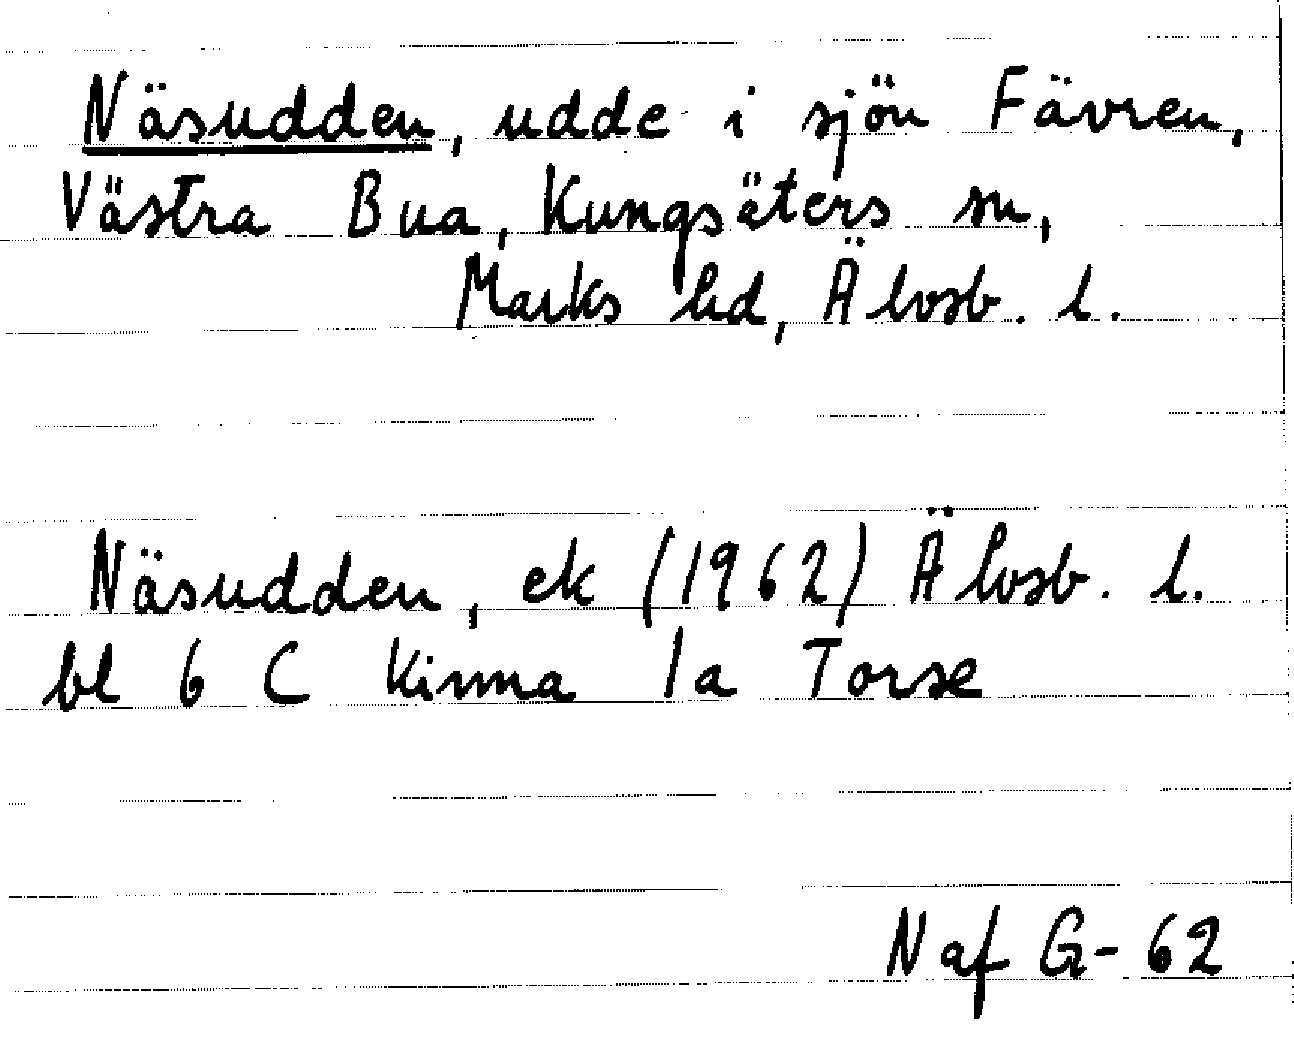 Näsudden, udde i sjön Fävren,
Västra Bua, Kungsäters sn,
Marks hd, Älvsb. l.
Näsudden, ek (1962) Älvsb. l.
bl 6 C Kinna 1a Torse
Naf G-62